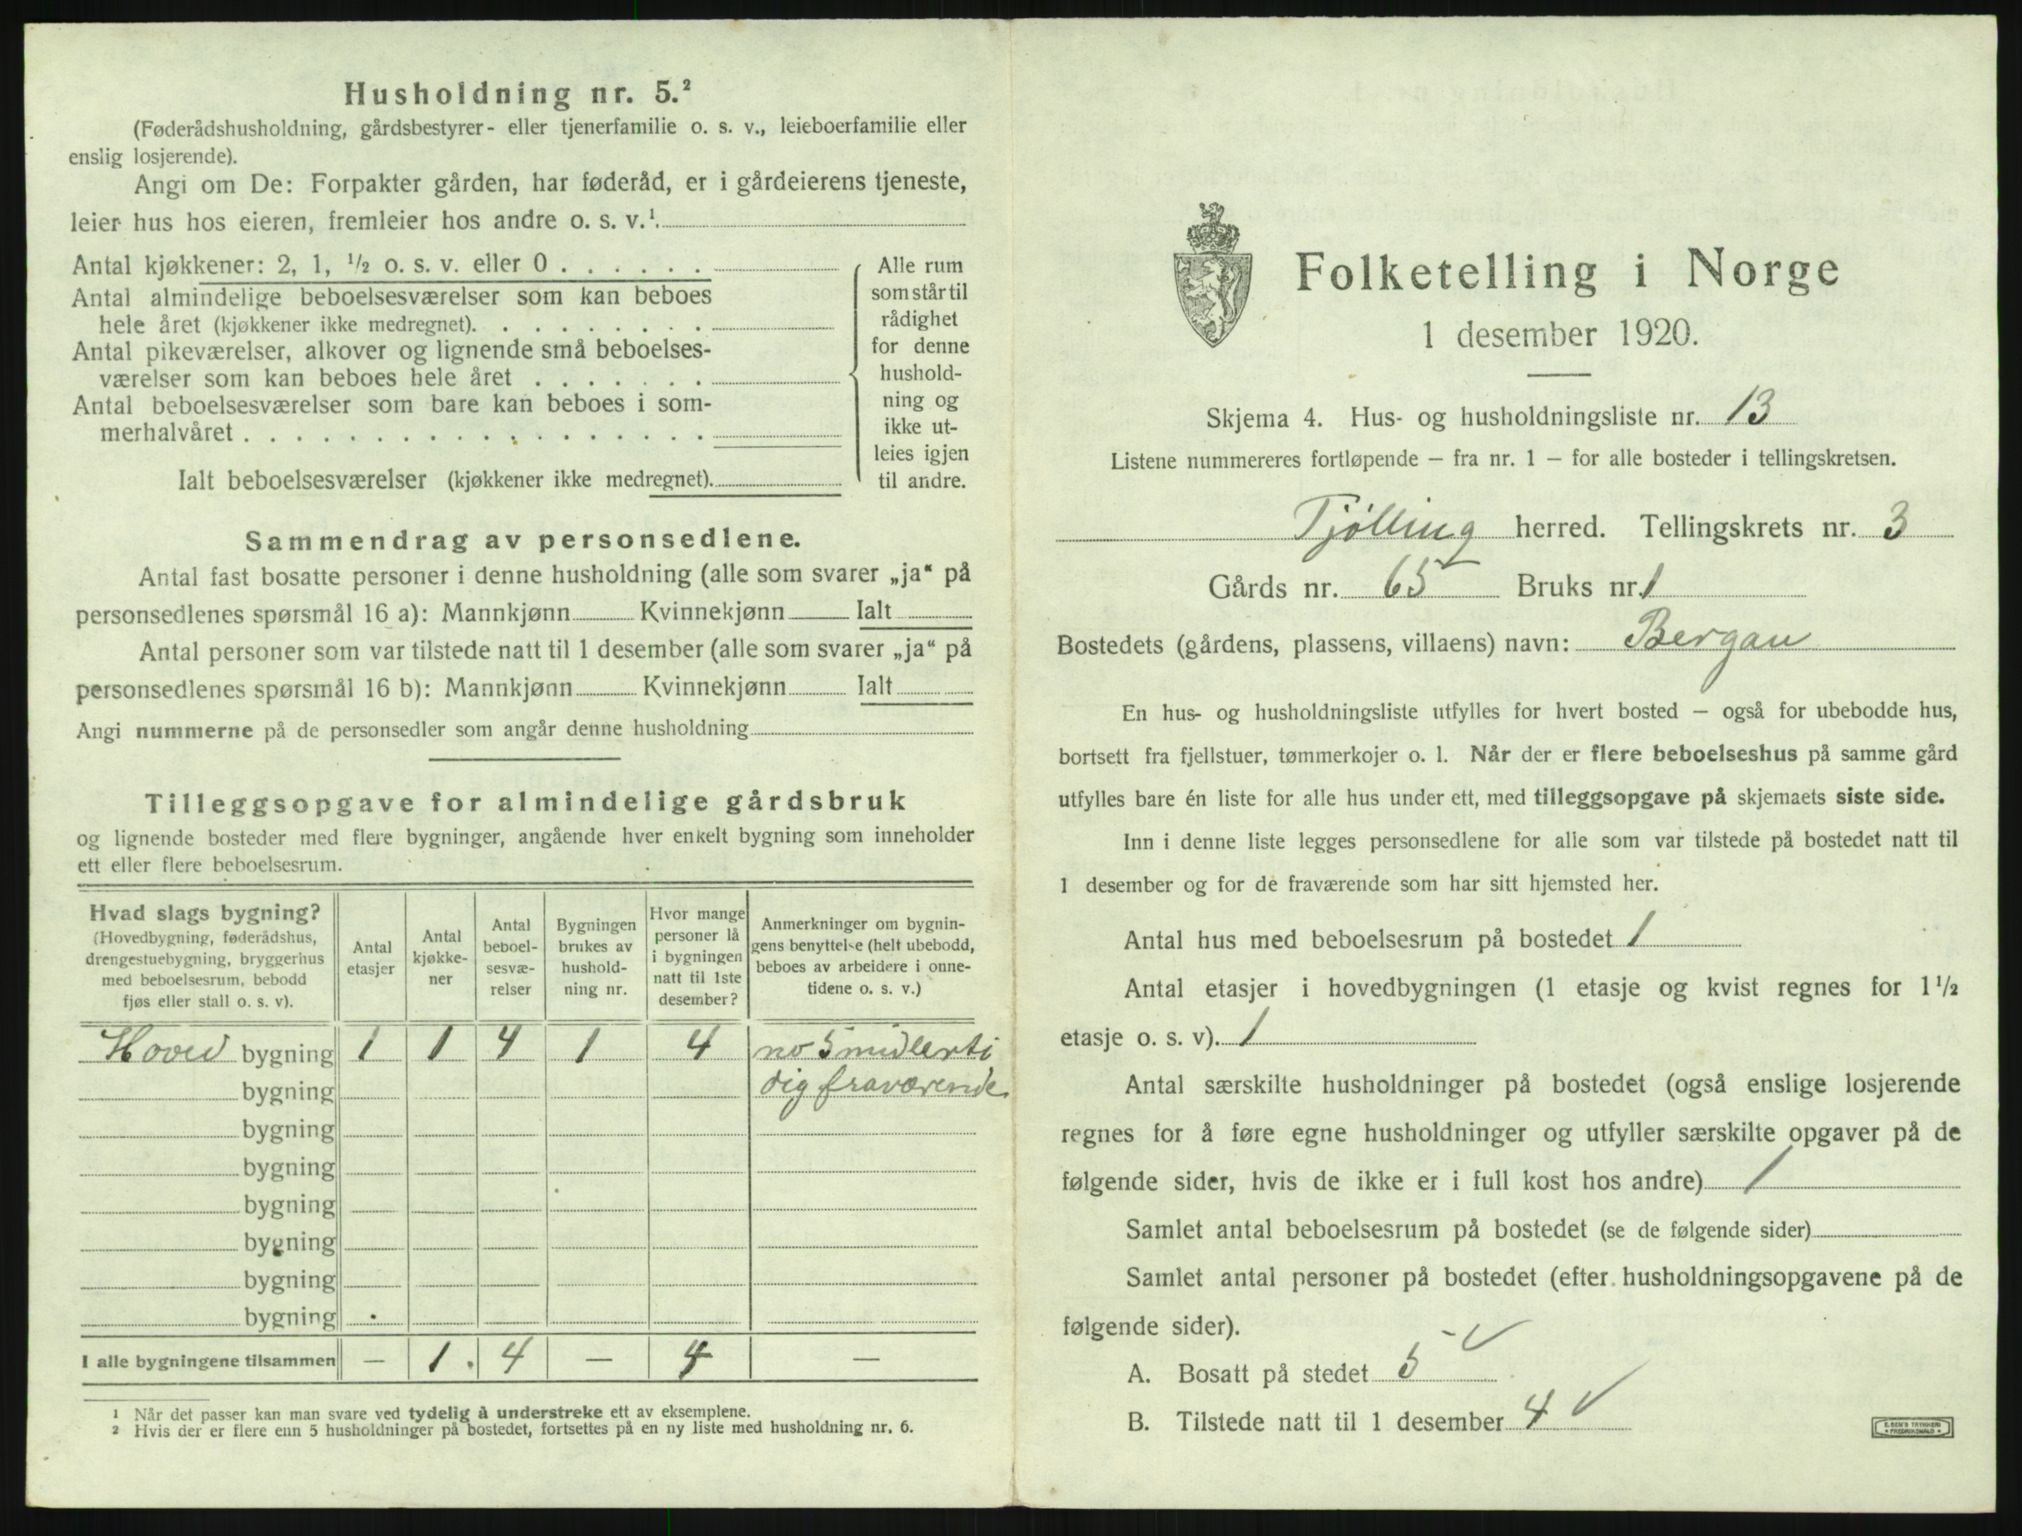 Husholdning nr. 5.²
(Føderådshusholdning, gårdsbestyrer- eller tjenerfamilie o. s. v., leieboerfamilie eller
enslig losjerende).
Angi om De: Forpakter gården, har føderåd, er i gårdeierens tjeneste,
leier hus hos eieren, fremleier hos andre o. s. v.¹.
Antal kjøkkener: 2, 1, ½ o. s. v. eller 0 . . . . . .
Antal almindelige beboelsesværelser som kan beboes
hele året (kjøkkener ikke medregnet). . . . . . . . .
Antal pikeværelser, alkover og lignende små beboelses-
værelser som kan beboes hele året . . . . . . .
Antal beboelsesværelser som bare kan beboes i som-
merhalvåret . . . . . . . . . . . . . . . . . .
Ialt beboelsesværelser (kjøkkener ikke medregnet).
Alle rum
som står til
rådighet
for denne
hushold-
ning og
ikke ut-
leies igjen
til andre.
Sammendrag av personsedlene.
Antal fast bosatte personer i denne husholdning (alle som svarer „ja“ på
personsedlenes spørsmål 16 a): Mannkjønn Kvinnekjønn Ialt
Antal personer som var tilstede natt til 1 desember (alle som svarer „ja“ på
personsedlenes spørsmål 16 b): Mannkjønn Kvinnekjønn Ialt
Angi nummerne på de personsedler som angår denne husholdning
Tilleggsopgave for almindelige gårdsbruk
og lignende bosteder med flere bygninger, angående hver enkelt bygning som inneholder
ett eller flere beboelsesrum.
Hvad slags bygning?
(Hovedbygning, føderådshus,
drengestuebygning, bryggerhus
med beboelsesrum, bebodd
fjøs eller stall o. s. v).
Antal
etasjer
Antal
kjøkke-
ner
Antal
beboel-
sesvæ-
relser
Bygningen
brukes av
hushold-
ning nr.
Hvor mange
personer lå
i bygningen
natt til 1ste
desember?
Anmerkninger om bygnin-
gens benyttelse (helt ubebodd,
beboes av arbeidere i onne-
tidene o. s. v.)
Hoved bygning 1 1 4 1 4 no 5 midlerti
bygning dig fraværende
bygning
bygning
bygning
bygning
bygning
bygning
I alle bygningene tilsammen — 1. 4 — 4 —
¹ Når det passer kan man svare ved tydelig å understreke ett av eksemplene.
² Hvis der er flere enn 5 husholdninger på bostedet, fortsettes på en ny liste med husholdning nr. 6.
Folketelling i Norge
1 desember 1920.
Skjema 4. Hus- og husholdningsliste nr. 13
Listene nummereres fortløpende — fra nr. 1 — for alle bosteder i tellingskretsen.
Tjølling herred. Tellingskrets nr. 3
Gårds nr. 65 Bruks nr. 1
Bostedets (gårdens, plassens, villaens) navn: Bergan
En hus- og husholdningsliste utfylles for hvert bosted — også for ubebodde hus,
bortsett fra fjellstuer, tømmerkojer o. l. Når der er flere beboelseshus på samme gård
utfylles bare én liste for alle hus under ett, med tilleggsopgave på skjemaets siste side.
Inn i denne liste legges personsedlene for alle som var tilstede på bostedet natt til
1 desember og for de fraværende som har sitt hjemsted her.
Antal hus med beboelsesrum på bostedet 1
Antal etasjer i hovedbygningen (1 etasje og kvist regnes for 1½
etasje o. s. v). 1
Antal særskilte husholdninger på bostedet (også enslige losjerende
regnes for å føre egne husholdninger og utfyller særskilte opgaver på de
følgende sider, hvis de ikke er i full kost hos andre) 1
Samlet antal beboelsesrum på bostedet (se de følgende sider)
Samlet antal personer på bostedet (efter husholdningsopgavene på de
følgende sider).
A. Bosatt på stedet 5 ✓
B. Tilstede natt til 1 desember 4 ✓